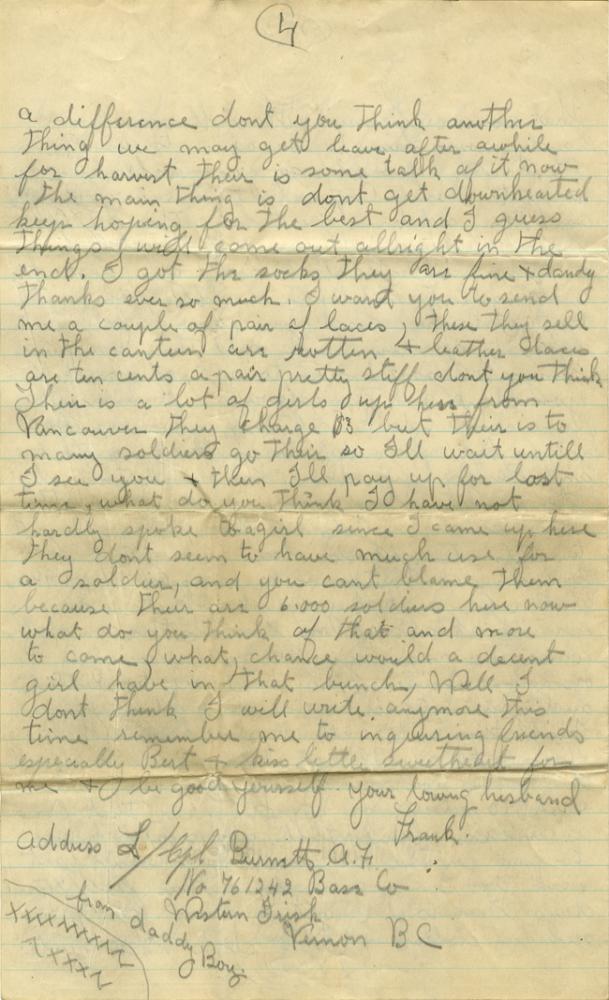 4
a difference dont you think another
thing we may get leave after awhile
for harvest their is some talk of it now
The main thing is dont get downhearted
keep hoping for the best and I guess
things will come out allright in the
end. I got the socks they are fine & dandy
Thanks ever so much. I want you to send
me a couple of pair of laces, these they sell
in the canteen are rotten & leather laces
are ten cents a pair pretty stiff dont you think
Their is a lot of girls up here from
Vancouver they charge $3 but their is to
many soldiers go their so Ill wait untill
I see you & then Ill pay up for lost
time, what do you think I have not
hardly spoke to a girl since I came up here
they dont seem to have much use for
a soldier, and you cant blame them
because their are 6.000 soldiers here now
what do you think of that and more
to come, what chance would a decent
girl have in that bunch, Well I
dont think I will write anymore this
time remember me to inquiring friends
especially Bert & kiss little sweetheart for
me & be good yourself. your loving husband
Frank.
Address L/Cpl Burnett A.F.
No 761242 Base Co
Western Irish
Vernon BC
from daddy
Boy.
xxxxxxxxx
xxxxx